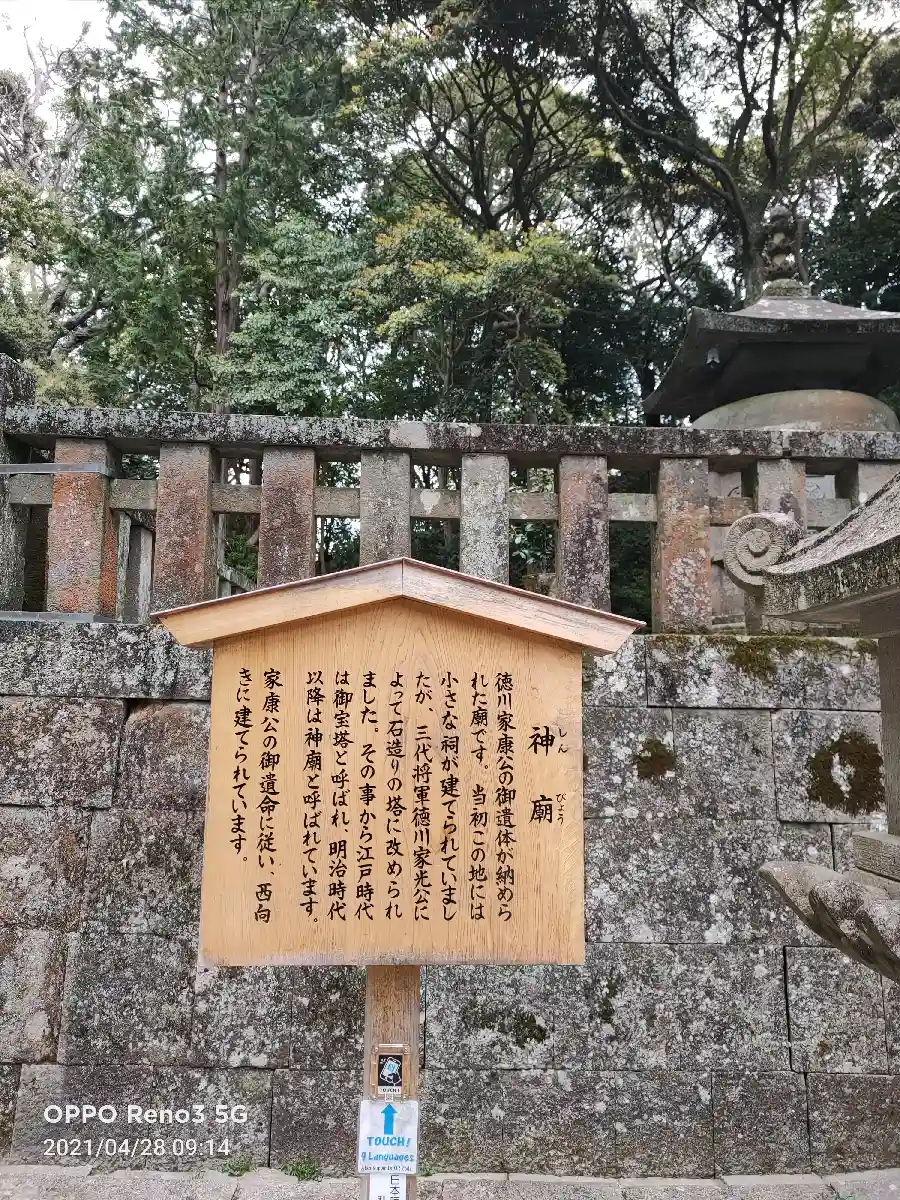 神廟
しんびょう
徳川家康公の御遺体が納めら
れた廟です。当初この地には
小さな祠が建てられていまし
たが、三代将軍徳川家光公に
よって石造りの塔に改められ
ました。その事から江戸時代
は御宝塔と呼ばれ、明治時代
以降は神廟と呼ばれています。
家康公の御遺命に従い、西向
きに建てられています。
TOUCH!
TOUCH!
9 Languages
日本
OPPO Reno3 5G
2021/04/28 09:14